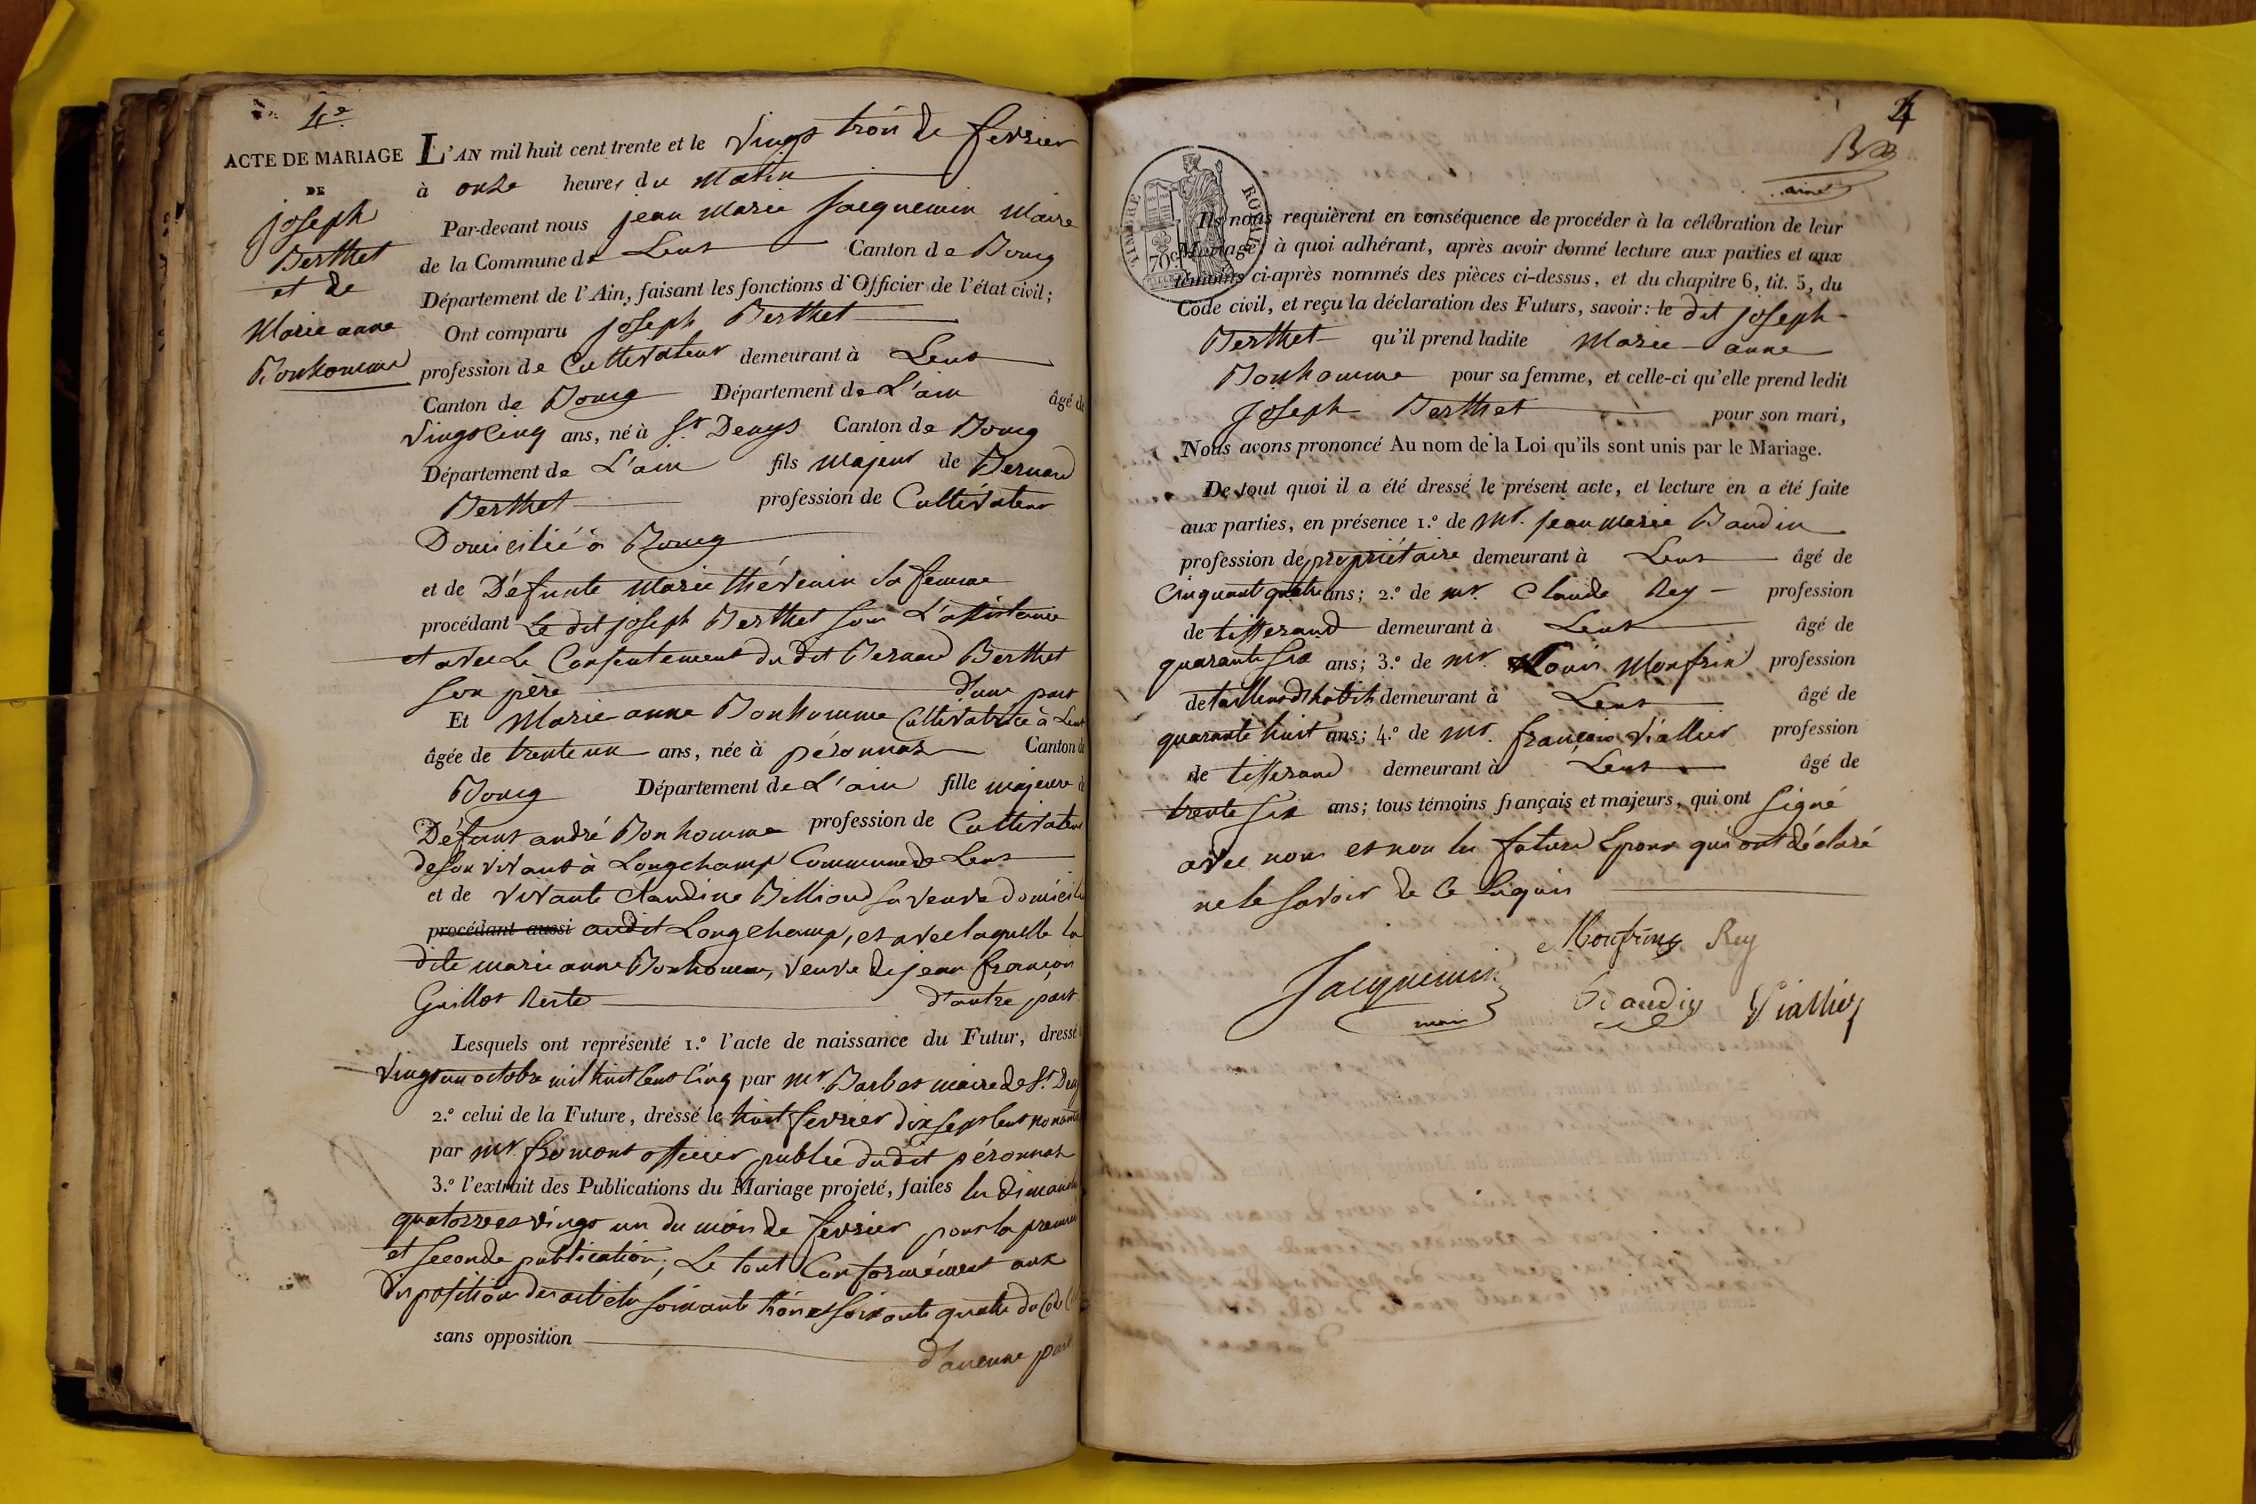 4e
ACTE DE MARIAGE
DE
joseph
Berthet
et de
Marie anne
Bonhomme
L'AN mil huit cent trente et le vingt trois de fevrier
à onze heures du matin
Par-devant nous jean Marie Jacquemin Maire
de la Commune de Lent Canton de Bourg
Département de l'Ain, faisant les fonctions d'Officier de l'état civil;
Ont comparu joseph Berthet
profession de Cultivateur demeurant à Lent
Canton de Bourg Département de L'ain âgé de
vingt cinq ans, né à St Denys Canton de Bourg
Département de L'ain fils majeur de Bernard
Berthet profession de Cultivateur
Domicilié à Bourg
et de Défunte Marie thévenin sa femme
procédant Le dit joseph Berthet sous L'assistance
et avec Le Consentement du dit Bernard Berthet
son père d'une part
Et Marie anne Bonhomme Cultivatrice à Lent
âgée de trente un ans, née à péronnas Canton de
Bourg Département de L'ain fille majeure
Défunt andré Bonhomme profession de Cultivateur
de son vivant à Longchamp Commune de Lent
et de vivante Claudine Billioud sa veuve domicili
procédant aussi audit Longchamp, et avec laquelle la
dite marie anne Bonhomme, veuve de jean françois
Guillot Reste d'autre part
Lesquels ont représenté 1.º l'acte de naissance du Futur, dressé
vingt un octobre mil huit cent cinq par Mr. Barbet maire de St. Deny
2.º celui de la Future, dressé le huit fevrier dix sept cent nonante
par Mr fromont officier public du dit péronnas
3.º l'extrait des Publications du Mariage projeté, faites les dimanche
quatorze et vingt un du mois de fevrier pour la premiere
et seconde publication; Le tout Conformément aux
dispositions des articles soixante trois et soixante quatre du Code
sans opposition
d'aucune part
4
aine
TIMBRE ROYAL
70c
Ils nous requièrent en conséquence de procéder à la célébration de leur
Mariage; à quoi adhérant, après avoir donné lecture aux parties et aux
témoins ci-après nommés des pièces ci-dessus, et du chapitre 6, tit. 5, du
Code civil, et reçu la déclaration des Futurs, savoir: le dit joseph
Berthet qu'il prend ladite Marie anne
Bonhomme pour sa femme, et celle-ci qu'elle prend ledit
joseph Berthet pour son mari,
Nous avons prononcé Au nom de la Loi qu'ils sont unis par le Mariage.
De tout quoi il a été dressé le présent acte, et lecture en a été faite
aux parties, en présence 1.º de Mr. jean marie Baudin
profession de propriétaire demeurant à Lent âgé de
Cinquant quatre ans; 2.º de mr. Claude Rey profession
de tisserand demeurant à Lent âgé de
quarante six ans; 3.º de mr. Louis Monfrin profession
de tailleur d'habits demeurant à Lent âgé de
quarante huit ans; 4.º de mr. françois viallier profession
de tisserand demeurant à Lent âgé de
trente six ans; tous témoins français et majeurs, qui ont signé
avec nous et non les futurs Epoux qui ont déclaré
ne le savoir de ce Requis
Monfring Rey
Jacquemin
maire
Baudin Viallier